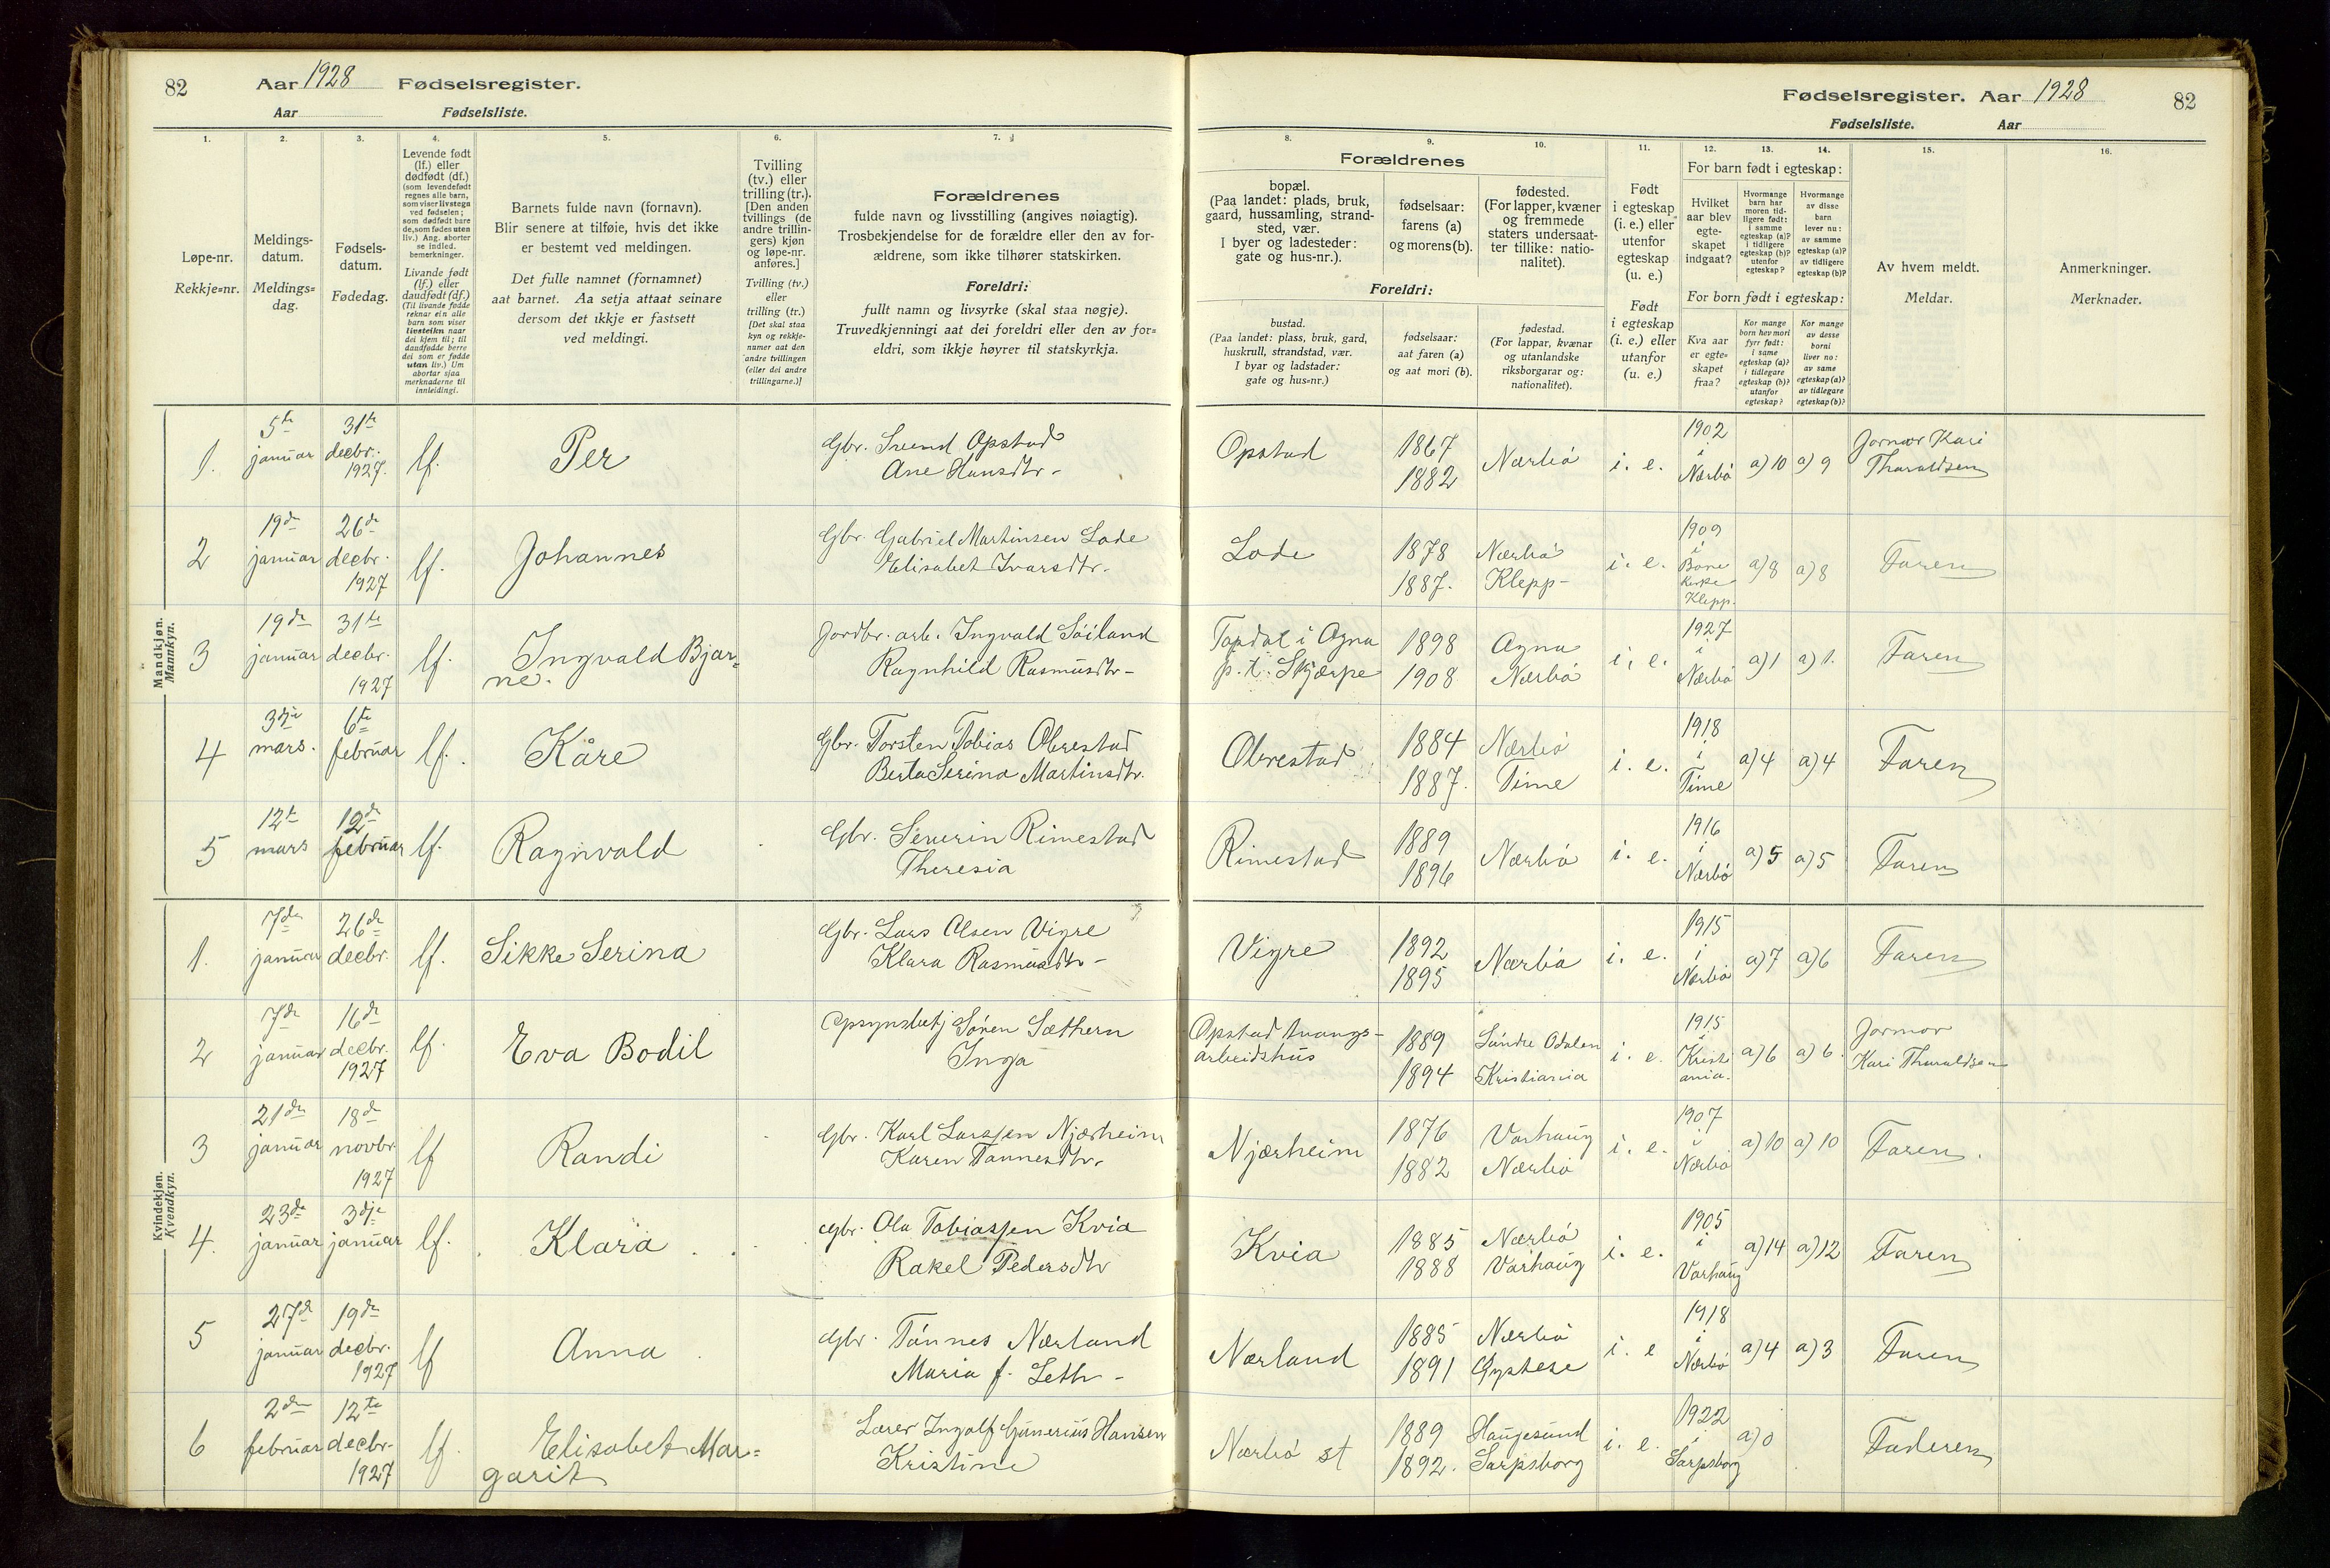 82
Aar 1928 Fødselsregister.
Aar Fødselsliste.
Fødselsregister. Aar 1928
82
Fødselsliste. Aar
1.
Løpe-nr.
Rekkje=nr.
2.
Meldings-
datum.
Meldings=
dag.
3.
Fødsels-
datum.
Fødedag.
4.
Levende født
(lf.) eller
dødfødt (df.)
(som levendefødt
regnes alle barn,
som viser livstegn
ved fødselen;
som dødfødt bare
de, som fødes uten
liv.) Ang. aborter
se indled.
bemerkninger.
Livande født
(lf.) eller
daudfødt (df.)
(Til livande fødde
reknar ein alle
barn som viser
livsteikn naar
dei kjem til; til
daudfødde berre
dei som er fødde
utan liv.) Um
abortar sjaa
merknaderne til
innleidingi.
5.
Barnets fulde navn (fornavn).
Blir senere at tilføie, hvis det ikke
er bestemt ved meldingen.
Det fulle namnet (fornamnet)
aat barnet. Aa setja attaat seinare
dersom det ikkje er fastsett
ved meldingi.
6.
Tvilling
(tv.) eller
trilling (tr.).
[Den anden
tvillings (de
andre trillin-
gers) kjøn
og løpe-nr.
anføres.]
Tvilling (tv.)
eller
trilling (tr.)
[Det skal staa
kyn og rekkje-
numer aat den
andre tvillingen
(eller dei andre
trillingarne.)]
7.
Forældrenes
fulde navn og livsstilling (angives nøiagtig).
Trosbekjendelse for de forældre eller den av for-
ældrene, som ikke tilhører statskirken.
Foreldri:
fullt namn og livsyrke (skal staa nøgje).
Truvedkjenningi aat dei foreldri eller den av for=
eldri, som ikkje høyrer til statskyrkja.
8.
Forældrenes
bopæl.
(Paa landet: plads, bruk,
gaard, hussamling, strand-
sted, vær.
I byer og ladesteder:
gate og hus-nr.).
Foreldri:
bustad.
(Paa landet: plass, bruk, gard,
huskrull, strandstad, vær.
I byar og ladstader:
gate og hus-nr.)
9.
fødselsaar:
farens (a)
og morens (b).
fødselsaar:
aat faren (a)
og aat mori (b).
10.
fødested.
(For lapper, kvæner
og fremmede
staters undersaat-
ter tillike: natio-
nalitet).
fødestad.
(For lappar, kvænar
og utanlandske
riksborgarar og:
nationalitet).
11.
Født
i egteskap
(i. e.) eller
utenfor
egteskap
(u. e.)
Født
i egteskap
(i. e.) eller
utanfor
(u. e.)
12.
For barn født i egteskap:
Hvilket
aar blev
egte-
skapet
indgaat?
For born født i egteskap:
Kva aar
er egte=
skapet
fraa?
13.
Hvormange
barn har
moren tid-
ligere født:
i samme
egteskap (a)?
i tidligere
egteskap (b)?
utenfor
egteskap?
Kor mange
born hev mori
fyrr født:
i same
egteskap (a)?
i tidlegare
egteskap (b)?
utanfor
egteskap?
14.
Hvormange
av disse
barn
lever nu:
av samme
egteskap (a)?
av tidligere
egteskap (b)?
Kor mange
av desse
borni
liver no:
av same
egteskap (a)?
av tidlegare
egteskap (b)?
15.
Av hvem meldt.
Meldar.
16.
Anmerkninger.
Merknader.
Mandkjøn.
Mannkyn.
1. 5te januar 31te decbr. 1927. lf. Per Gbr. Svend Opstad Ane Hansdtr- Opstad 1867 1882 Nærbø i. e. 1902 i Nærbø a) 10 a) 9 Jormor Kari Tharaldsen
2 19de januar 26de decbr. 1927 lf. Johannes Gbr. Gabriel Martinsen Lode Elisabet Ivarsdtr- Lode 1878 1887. Nærbø Klepp- i. e. 1909 i Bore Kirke Klepp. a) 8 a) 8 Faren
3 19de januar 31te decbr. 1927 lf. Ingvald Bjar=ne. Jordbr. arb. Ingvald Söiland Ragnhild Rasmusdtr- Tapdal i Ogna p. t. Skjærpe 1898 1908 Ogna Nærbø i. e. 1927 i Nærbø a) 1 a) 1. Faren
4 3dje mars. 6te februar lf. Kåre Gbr. Torsten Tobias Obrestad Berta Serina Martinsdtr. Obrestad 1884 1887. Nærbø Time i. e. 1918 i Time a) 4 a) 4 Faren
5 12te mars 12de februar lf. Ragnvald Gbr. Severin Rimestad Theresia Rimestad 1889 1896 Nærbø i. e. 1916 i Nærbø a) 5 a) 5 Faren
Kvindekjøn.
Kvendkyn.
1. 7de januar 26de decbr. lf. Sikke Serina Gbr. Lars Olsen Vigre Klara Rasmusdtr- Vigre 1892 1895 Nærbø i. e. 1915 i Nærbø a) 7 a) 6 Faren
2 7de januar 16de decbr. 1927 lf. Eva Bodil Opsynsbetj Sören Sæthern Inga Opstad tvangs-arbeidshus 1889 1894 Söndre Odalen Kristiania i. e. 1915 i Kristiania. a) 6 a) 6. Jormor Kari Tharaldsen
3 21de januar 18de novbr. 1927 lf Randi Gbr. Karl Larssen Njærheim Karen Tønnesdtr. Njærheim 1876 1882 Varhaug Nærbø i. e. 1907 i Nærbø a) 10 a) 10 Faren.
4. 23de januar 3dje januar lf. Klara Gbr. Ola Tobiassen Kvia Rakel Pedersdtr Kvia 1885 1888 Nærbø Varhaug i. e. 1905 i Varhaug a) 14 a) 12 Faren
5 27de januar 19de decbr. 1927 lf Anna Gbr. Tönnes Nærland Maria f. Leth- Nærland 1885 1891 Nærbø Øystese i. e 1918 i Nærbø a) 4 a) 3 Faren
6 2den februar 12te decbr- 1927 lf. Elisabet Mar=garit Lærer Ingolf Gunerius Hansen Kristine Nærbø st 1889 1892. Haugesund Sarpsborg i. e. 1922 i Sarpsborg a) 0 Faderen